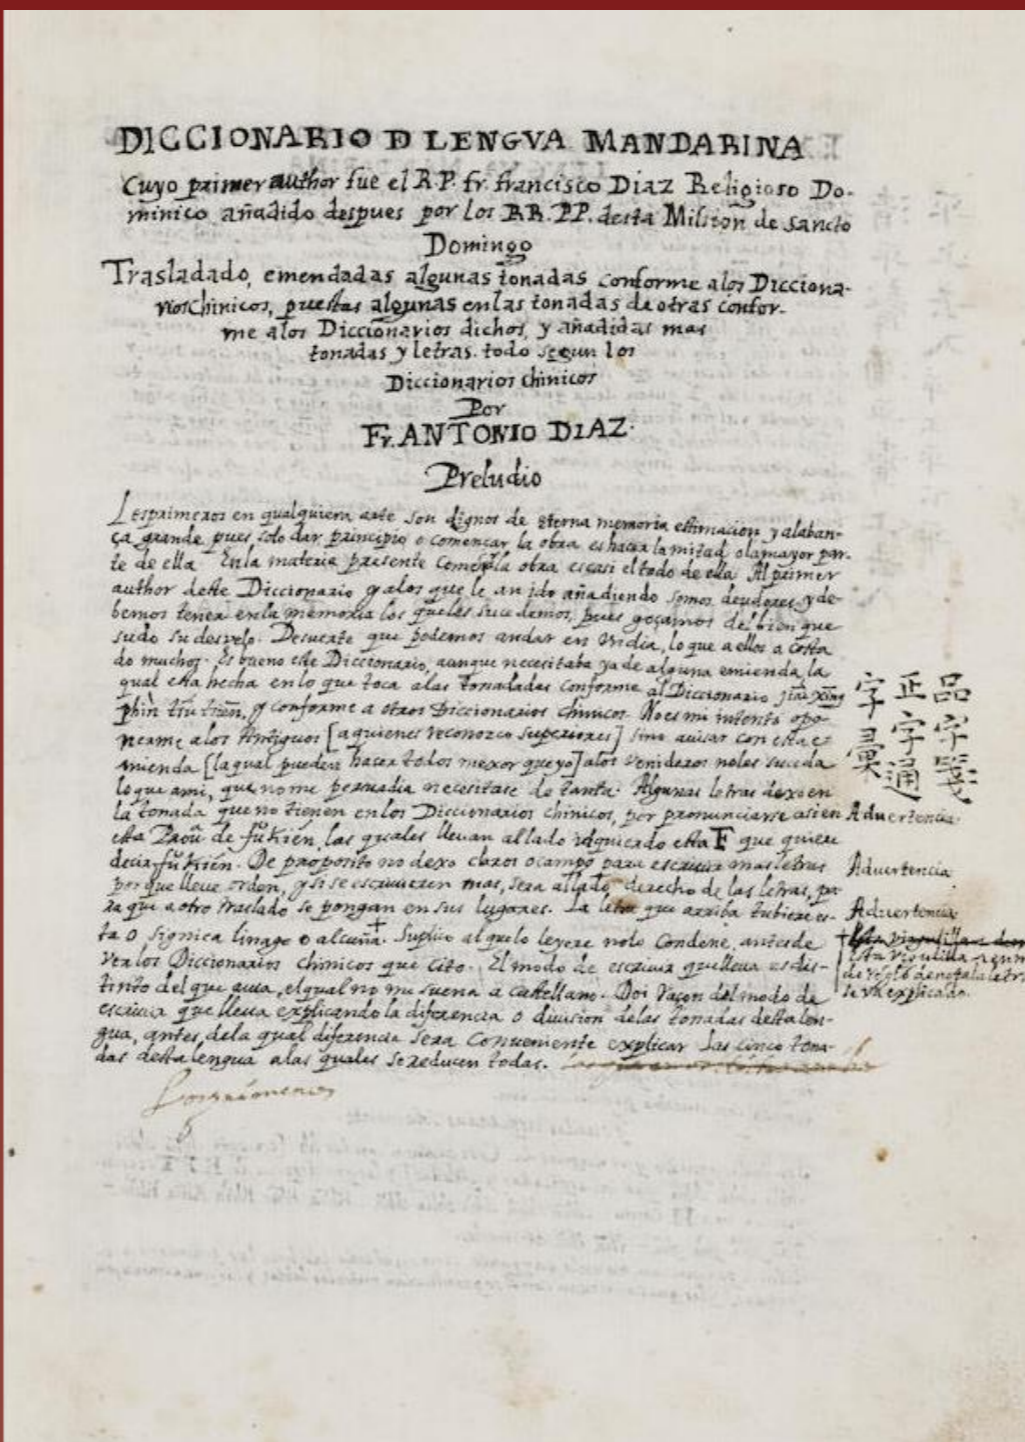 DICCIONARIO D LENGVA MANDARINA
Cuyo primer author fue el R.P. fr. francisco Diaz Religioso Do-
minico añadido despues por los RR. PP. desta Mission de sancto
Domingo
Trasladado, emendadas algunas tonadas conforme alos Dicciona-
rios chinicos, puestas algunas enlas tonadas de otras confor-
me alos Diccionarios dichos, y añadidas mas
tonadas y letras. todo segun los
Diccionarios chinicos
Por
Fr. ANTONIO DIAZ.
Preludio
Los primeros en qualquiera arte son dignos de eterna memoria estimacion y alaban-
ça grande, pues solo dar principio o comencar la obra es hacer la mitad o la mayor par-
te de ella. En la materia presente la obra es casi el todo de ella. Al primer
author deste Diccionario y alos que le an ido añadiendo somos deudores, y de-
bemos tener en la memoria los que les sucedemos, pues goçamos del bien que
sudo su desvelo. Desuerte que podemos andar en vn dia, lo que a ellos a costa
do muchos. Es bueno este Diccionario, aunque necesitaba ya de alguna emienda, la
qual esta hecha en lo que toca alas tonadadas conforme al Diccionario
y conforme a otros Diccionarios chinicos. No es mi intento opo-
nerme alos Antiguos [a quienes reconozco superiores] sino avisar con esta e-
mienda [la qual pueden hacer todos mexor que yo] alos venideros no les suceda
lo que ami, que no me persuadia necesitase de tanta. Algunas letras dexo en
la tonada que no tienen en los Diccionarios chinicos, por pronunciarse asi en
esta de fŭ Kién, las quales llevan al lado izquierdo esta F que quiere
decir fŭ Kién. De proposito no dexo claros o campo para escrivir mas letras
porque lleve orden, y si se escrivieren mas, sera al lado derecho de las letras, pa-
ra que a otro traslado se pongan en sus lugares. La letra que arriba tubiere es-
ta o, signica linage o alcuña. Suplico al que lo leyere nolo condene, antes de
ver los Diccionarios chinicos que cito. El modo de escrivir que lleva es dis-
tinto del que avia, el qual no me suena a castellano. Doi raçon del modo de
escrivir que lleva explicando la diferencia o division delas tonadas desta len-
gua, antes dela qual diferencia sera conveniente explicar las cinco tona-
das desta lengua alas quales se reducen todas.
品字箋
正字通
字彙
Advertencia.
Advertencia
Advertencia
esta virgulilla
se va explicado.